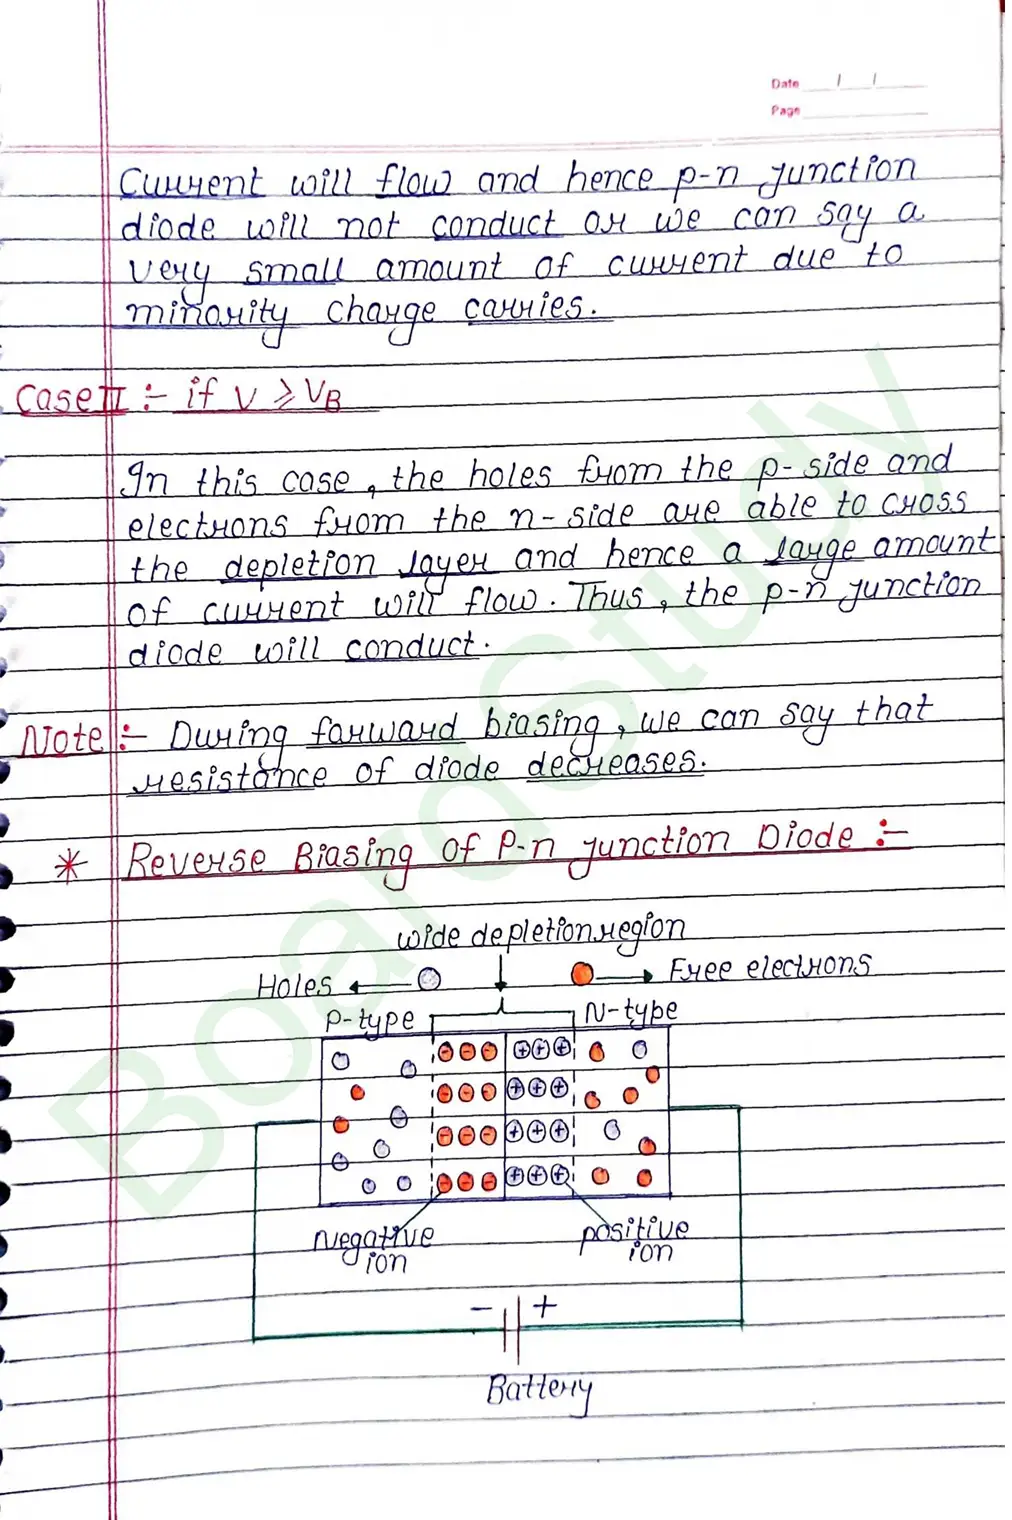 Date / /
Page
Current will flow and hence p-n junction
diode will not conduct or we can say a
very small amount of current due to
minority charge carries.
Case II :- if V ⩾ VB
In this case, the holes from the p-side and
electrons from the n-side are able to cross
the depletion layer and hence a large amount
of current will flow. Thus, the p-n junction
diode will conduct.
Note :- During forward biasing, we can say that
resistance of diode decreases.
* Reverse Biasing Of P-n junction Diode :-
wide depletion region
Holes ← → Free electrons
P-type N-type
- - - + + +
- - - + + +
- - - + + +
- - - + + +
Negative positive
ion ion
- +
Battery
BoardStudy